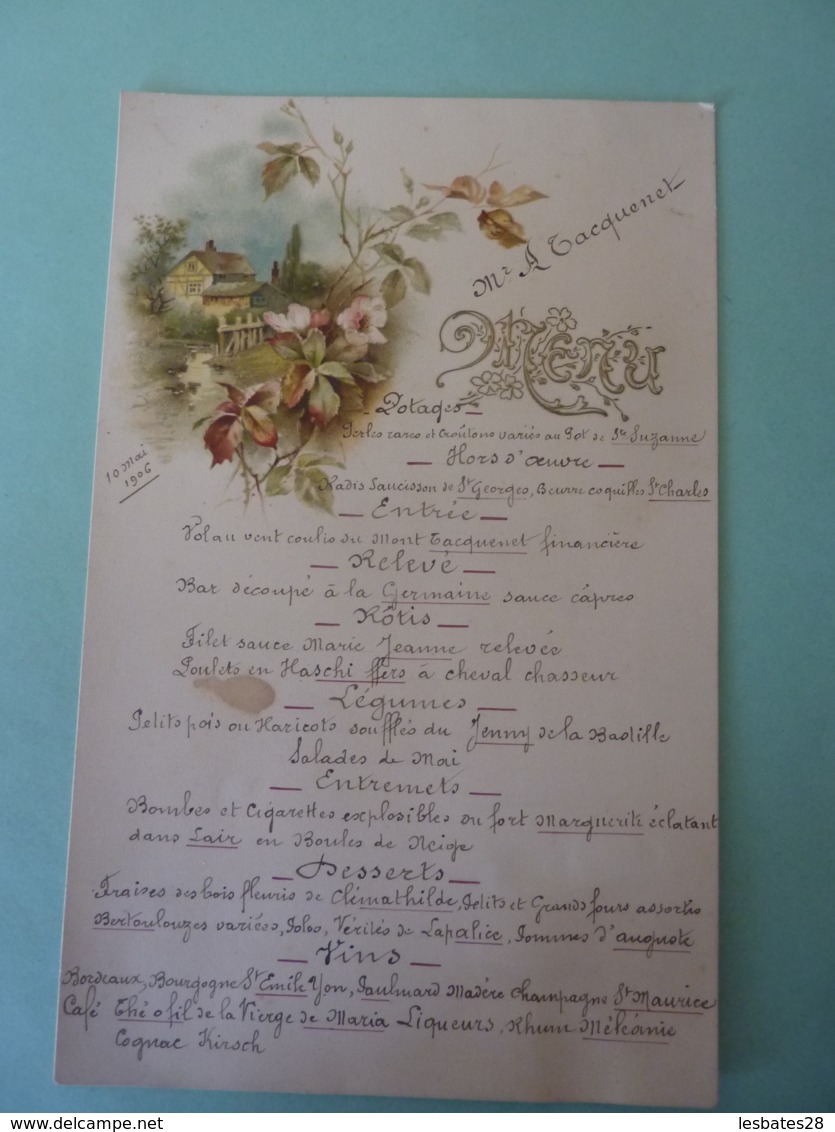 Mr A Tacquenet
Menu
Potages
Perles rares et Croûtons variés au Pot de Ste Suzanne
10 Mai
1906
Hors d'œuvre
Radis Saucisson de St Georges, Beurre coquilles St Charles
Entrée
Vol au vent coulis du Mont Tacquenet financière
Relevé
Bar découpé à la Germaine sauce câpres
Rôtis
Filet sauce Marie Jeanne relevée
Poulets en Haschi ffers à cheval chasseur
Légumes
Petits pois ou Haricots soufflés du Jenny de la Bastille
Salades de Mai
Entremets
Bombes et Cigarettes explosibles du fort Marguerite éclatant
dans Lair en Boules de Neige
Desserts
Fraises des bois fleuris de Clémathilde, Petits et Grands fours assortis
Bertoulouzes variées, Vérités de Lapalice, Pommes d'auguste
Vins
Bordeaux, Bourgogne St Emile Yon, Paulmard Madère Champagne St Maurice
Café Thé o fil de la Vierge de Maria Liqueurs, Rhum Méléanie
Cognac Kirsch
delcampe.net
lesbates28